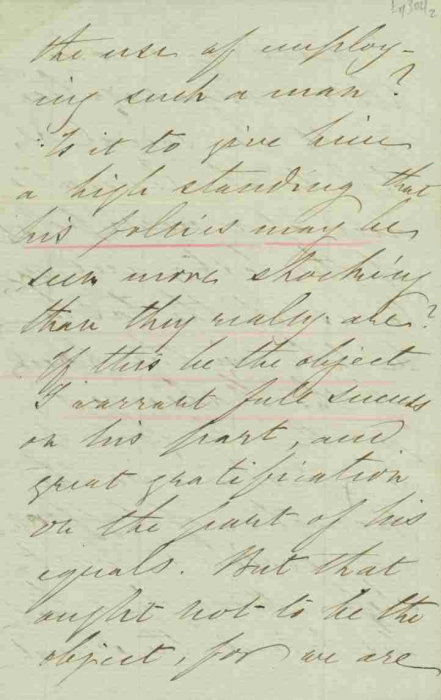 the use of employ-
ing such a man?
Is it to give him
a high standing that
his follies may be
seen more shocking
than they really are?
If this be the object
I warrant full success
on his part, and
great gratification
on the part of his
equals. But that
ought not to be the
object, for we are